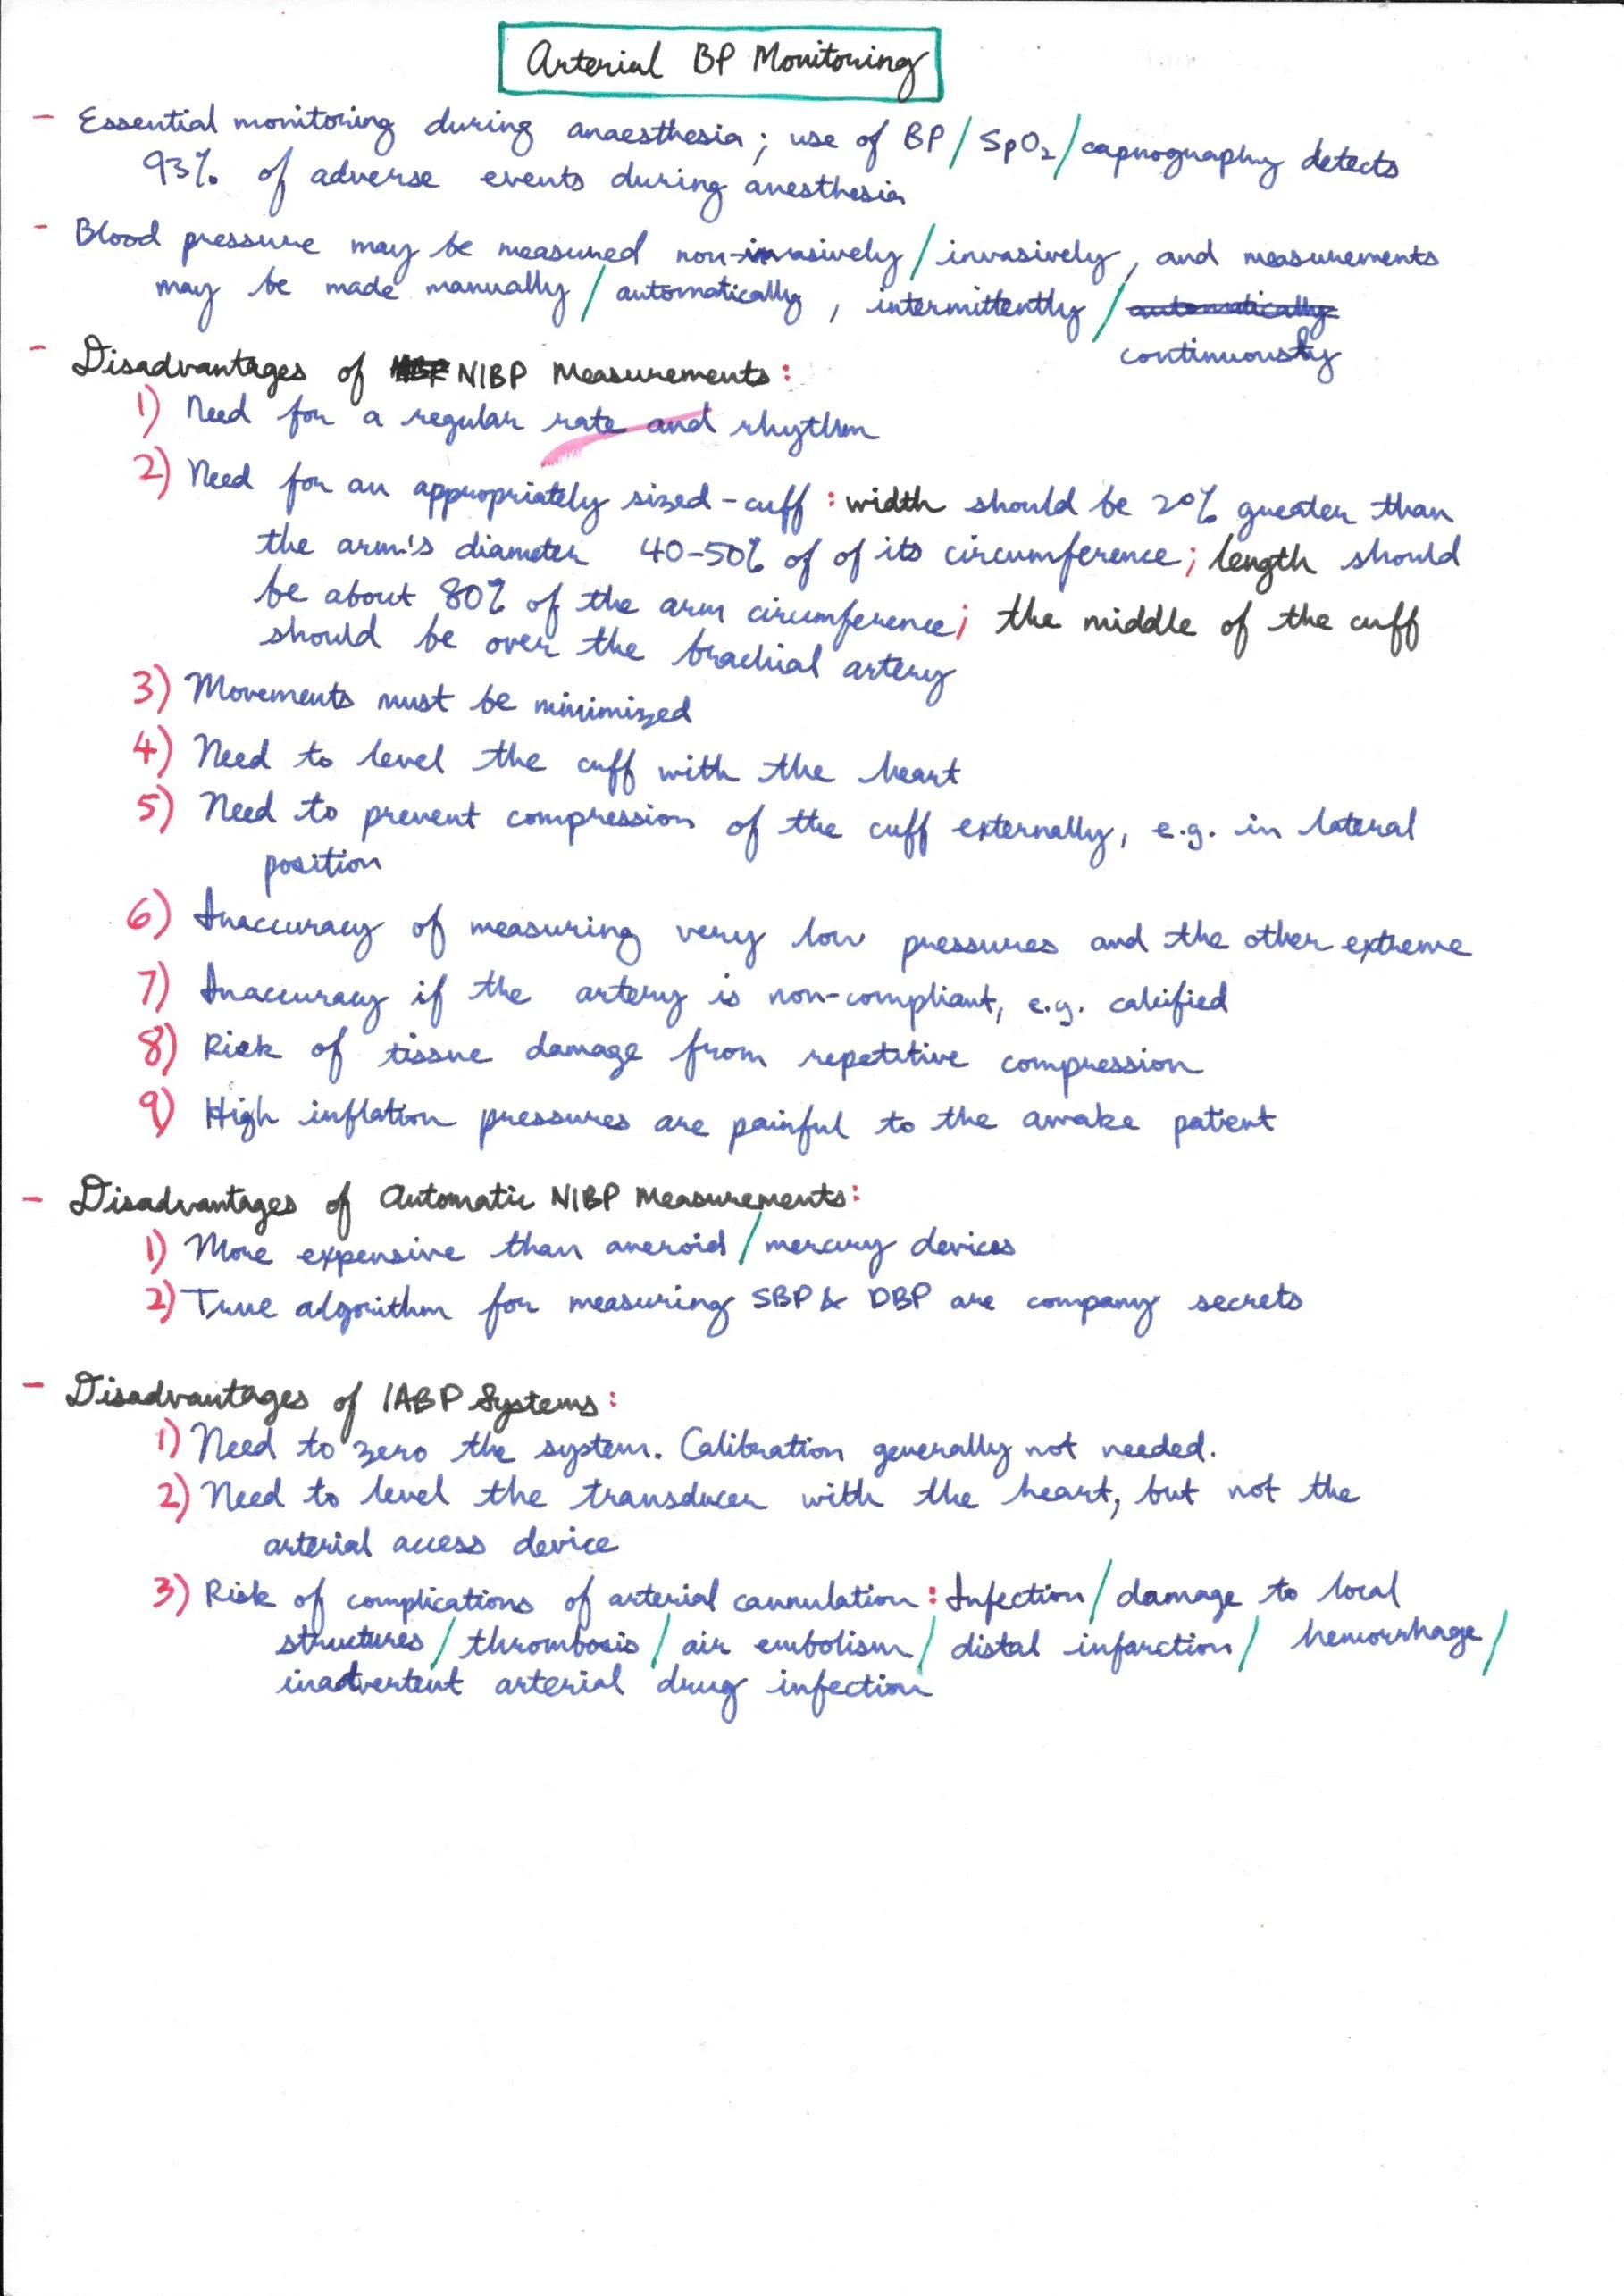 Arterial BP Monitoring
- Essential monitoring during anaesthesia; use of BP/SpO₂/capnography detects
93% of adverse events during anesthesia
- Blood pressure may be measured non-invasively/invasively, and measurements
may be made manually/automatically, intermittently/automatically
continuously
- Disadvantages of NIBP Measurements:
1) Need for a regular rate and rhythm
2) Need for an appropriately sized-cuff: width should be 20% greater than
the arm's diameter 40-50% of of its circumference; length should
be about 80% of the arm circumference; the middle of the cuff
should be over the brachial artery
3) Movements must be minimized
4) Need to level the cuff with the heart
5) Need to prevent compression of the cuff externally, e.g. in lateral
position
6) Inaccuracy of measuring very low pressures and the other extreme
7) Inaccuracy if the artery is non-compliant, e.g. calcified
8) Risk of tissue damage from repetitive compression
9) High inflation pressures are painful to the awake patient
- Disadvantages of Automatic NIBP Measurements:
1) More expensive than aneroid/mercury devices
2) True algorithm for measuring SBP & DBP are company secrets
- Disadvantages of IABP Systems:
1) Need to zero the system. Calibration generally not needed.
2) Need to level the transducer with the heart, but not the
arterial access device
3) Risk of complications of arterial cannulation: Infection/damage to local
structures/thrombosis/air embolism/distal infarction/hemorrhage/
inadvertent arterial drug infection